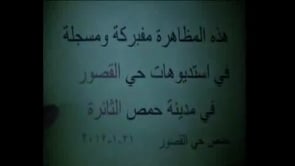 هذه المظاهرة مفبركة ومسجلة
في استديوهات حي القصور
في مدينة حمص الثائرة
حمص حي القصور
٢٠١٢-١-٣١